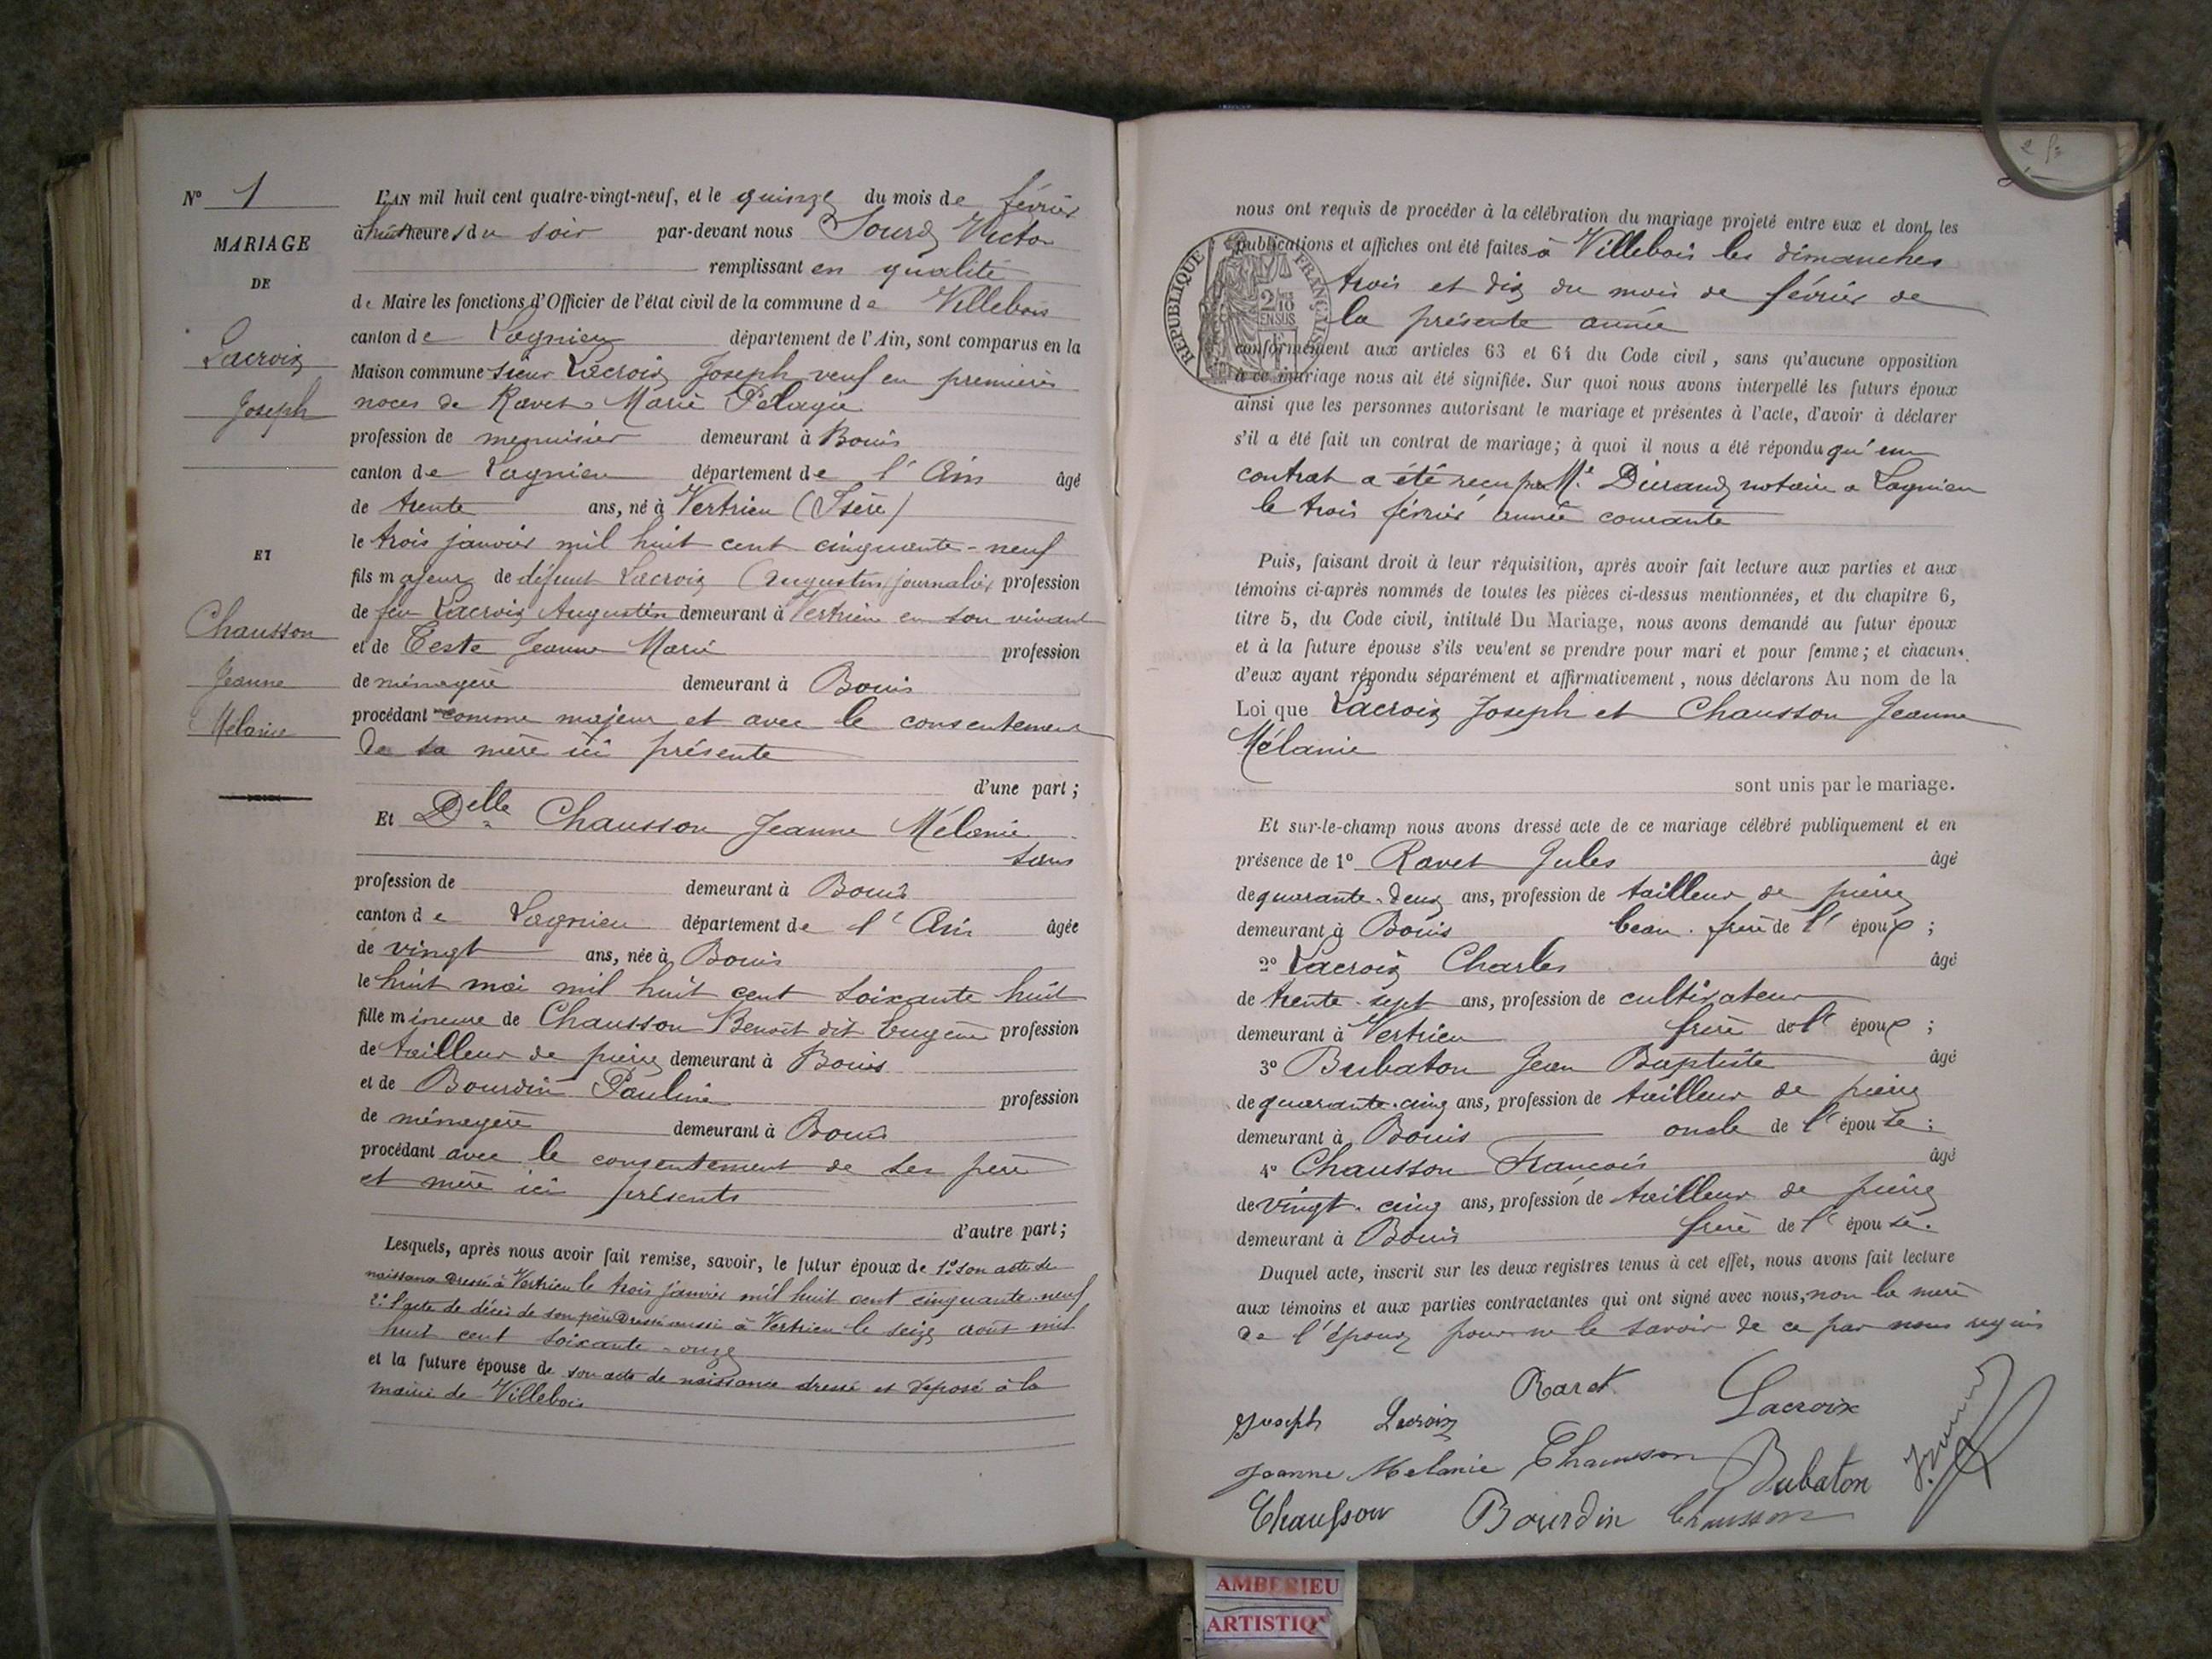 N° 1
MARIAGE
DE
Lacroix
Joseph
ET
Chausson
Jeanne
Mélanie
L'AN mil huit cent quatre-vingt-neuf, et le quinze du mois de février
à huit heures du soir par-devant nous Sourd Victor
remplissant en qualité
de Maire les fonctions d'Officier de l'état civil de la commune de Villebois
canton de Lagnieu département de l'Ain, sont comparus en la
Maison commune sieur Lacroix Joseph veuf en premières
noces de Ravet Marie Pélagie
profession de menuisier demeurant à Bouis
canton de Lagnieu département de l'Ain âgé
de trente ans, né à Vertrieu (Isère)
le trois janvier mil huit cent cinquante-neuf
fils majeur de défunt Lacroix Augustin journalier profession
de feu Lacroix Augustin demeurant à Vertrieu en son vivant
et de Teste Jeanne Marie profession
de ménagère demeurant à Bouis
procédant comme majeur et avec le consentement
de sa mère ici présente
d'une part ;
Et Delle Chausson Jeanne Mélanie
sans
profession de demeurant à Bouis
canton de Lagnieu département de l'Ain âgée
de vingt ans, née à Bouis
le huit mai mil huit cent soixante huit
fille mineure de Chausson Benoît dit Eugène profession
de tailleur de pierre demeurant à Bouis
et de Bourdin Pauline profession
de ménagère demeurant à Bouis
procédant avec le consentement de ses père
et mère ici présents
d'autre part ;
Lesquels, après nous avoir fait remise, savoir, le futur époux de 1° son acte de
naissance dressé à Vertrieu le trois janvier mil huit cent cinquante-neuf
2° l'acte de décès de son père dressé aussi à Vertrieu le seize août mil
huit cent soixante-onze
et la future épouse de son acte de naissance dressé et déposé à la
mairie de Villebois
nous ont requis de procéder à la célébration du mariage projeté entre eux et dont les
publications et affiches ont été faites à Villebois les dimanches
trois et dix du mois de février de
la présente année
RÉPUBLIQUE FRANÇAISE
2/10
EN SUS
conformément aux articles 63 et 64 du Code civil, sans qu'aucune opposition
à ce mariage nous ait été signifiée. Sur quoi nous avons interpellé les futurs époux
ainsi que les personnes autorisant le mariage et présentes à l'acte, d'avoir à déclarer
s'il a été fait un contrat de mariage ; à quoi il nous a été répondu qu'un
contrat a été reçu par Me Durand notaire a Lagnieu
le trois février année courante
Puis, faisant droit à leur réquisition, après avoir fait lecture aux parties et aux
témoins ci-après nommés de toutes les pièces ci-dessus mentionnées, et du chapitre 6,
titre 5, du Code civil, intitulé Du Mariage, nous avons demandé au futur époux
et à la future épouse s'ils veulent se prendre pour mari et pour femme ; et chacun
d'eux ayant répondu séparément et affirmativement, nous déclarons Au nom de la
Loi que Lacroix Joseph et Chausson Jeanne
Mélanie
sont unis par le mariage.
Et sur-le-champ nous avons dressé acte de ce mariage célébré publiquement et en
présence de 1° Ravet Jules âgé
de quarante-deux ans, profession de tailleur de pierre
demeurant à Bouis beau-frère de l'époux ;
2° Lacroix Charles âgé
de trente-sept ans, profession de cultivateur
demeurant à Vertrieu frère de l'époux ;
3° Bubaton Jean Baptiste âgé
de quarante-cinq ans, profession de tailleur de pierre
demeurant à Bouis oncle de l'épouse ;
4° Chausson François âgé
de vingt-cinq ans, profession de tailleur de pierre
demeurant à Bouis frère de l'épouse.
Duquel acte, inscrit sur les deux registres tenus à cet effet, nous avons fait lecture
aux témoins et aux parties contractantes qui ont signé avec nous, non la mère
de l'époux pour ne le savoir de ce par nous requis
Ravet Lacroix
Joseph Lacroix
Jeanne Melanie Chausson Bubaton
Chausson Bourdin Chausson
AMBERIEU
ARTISTIQ